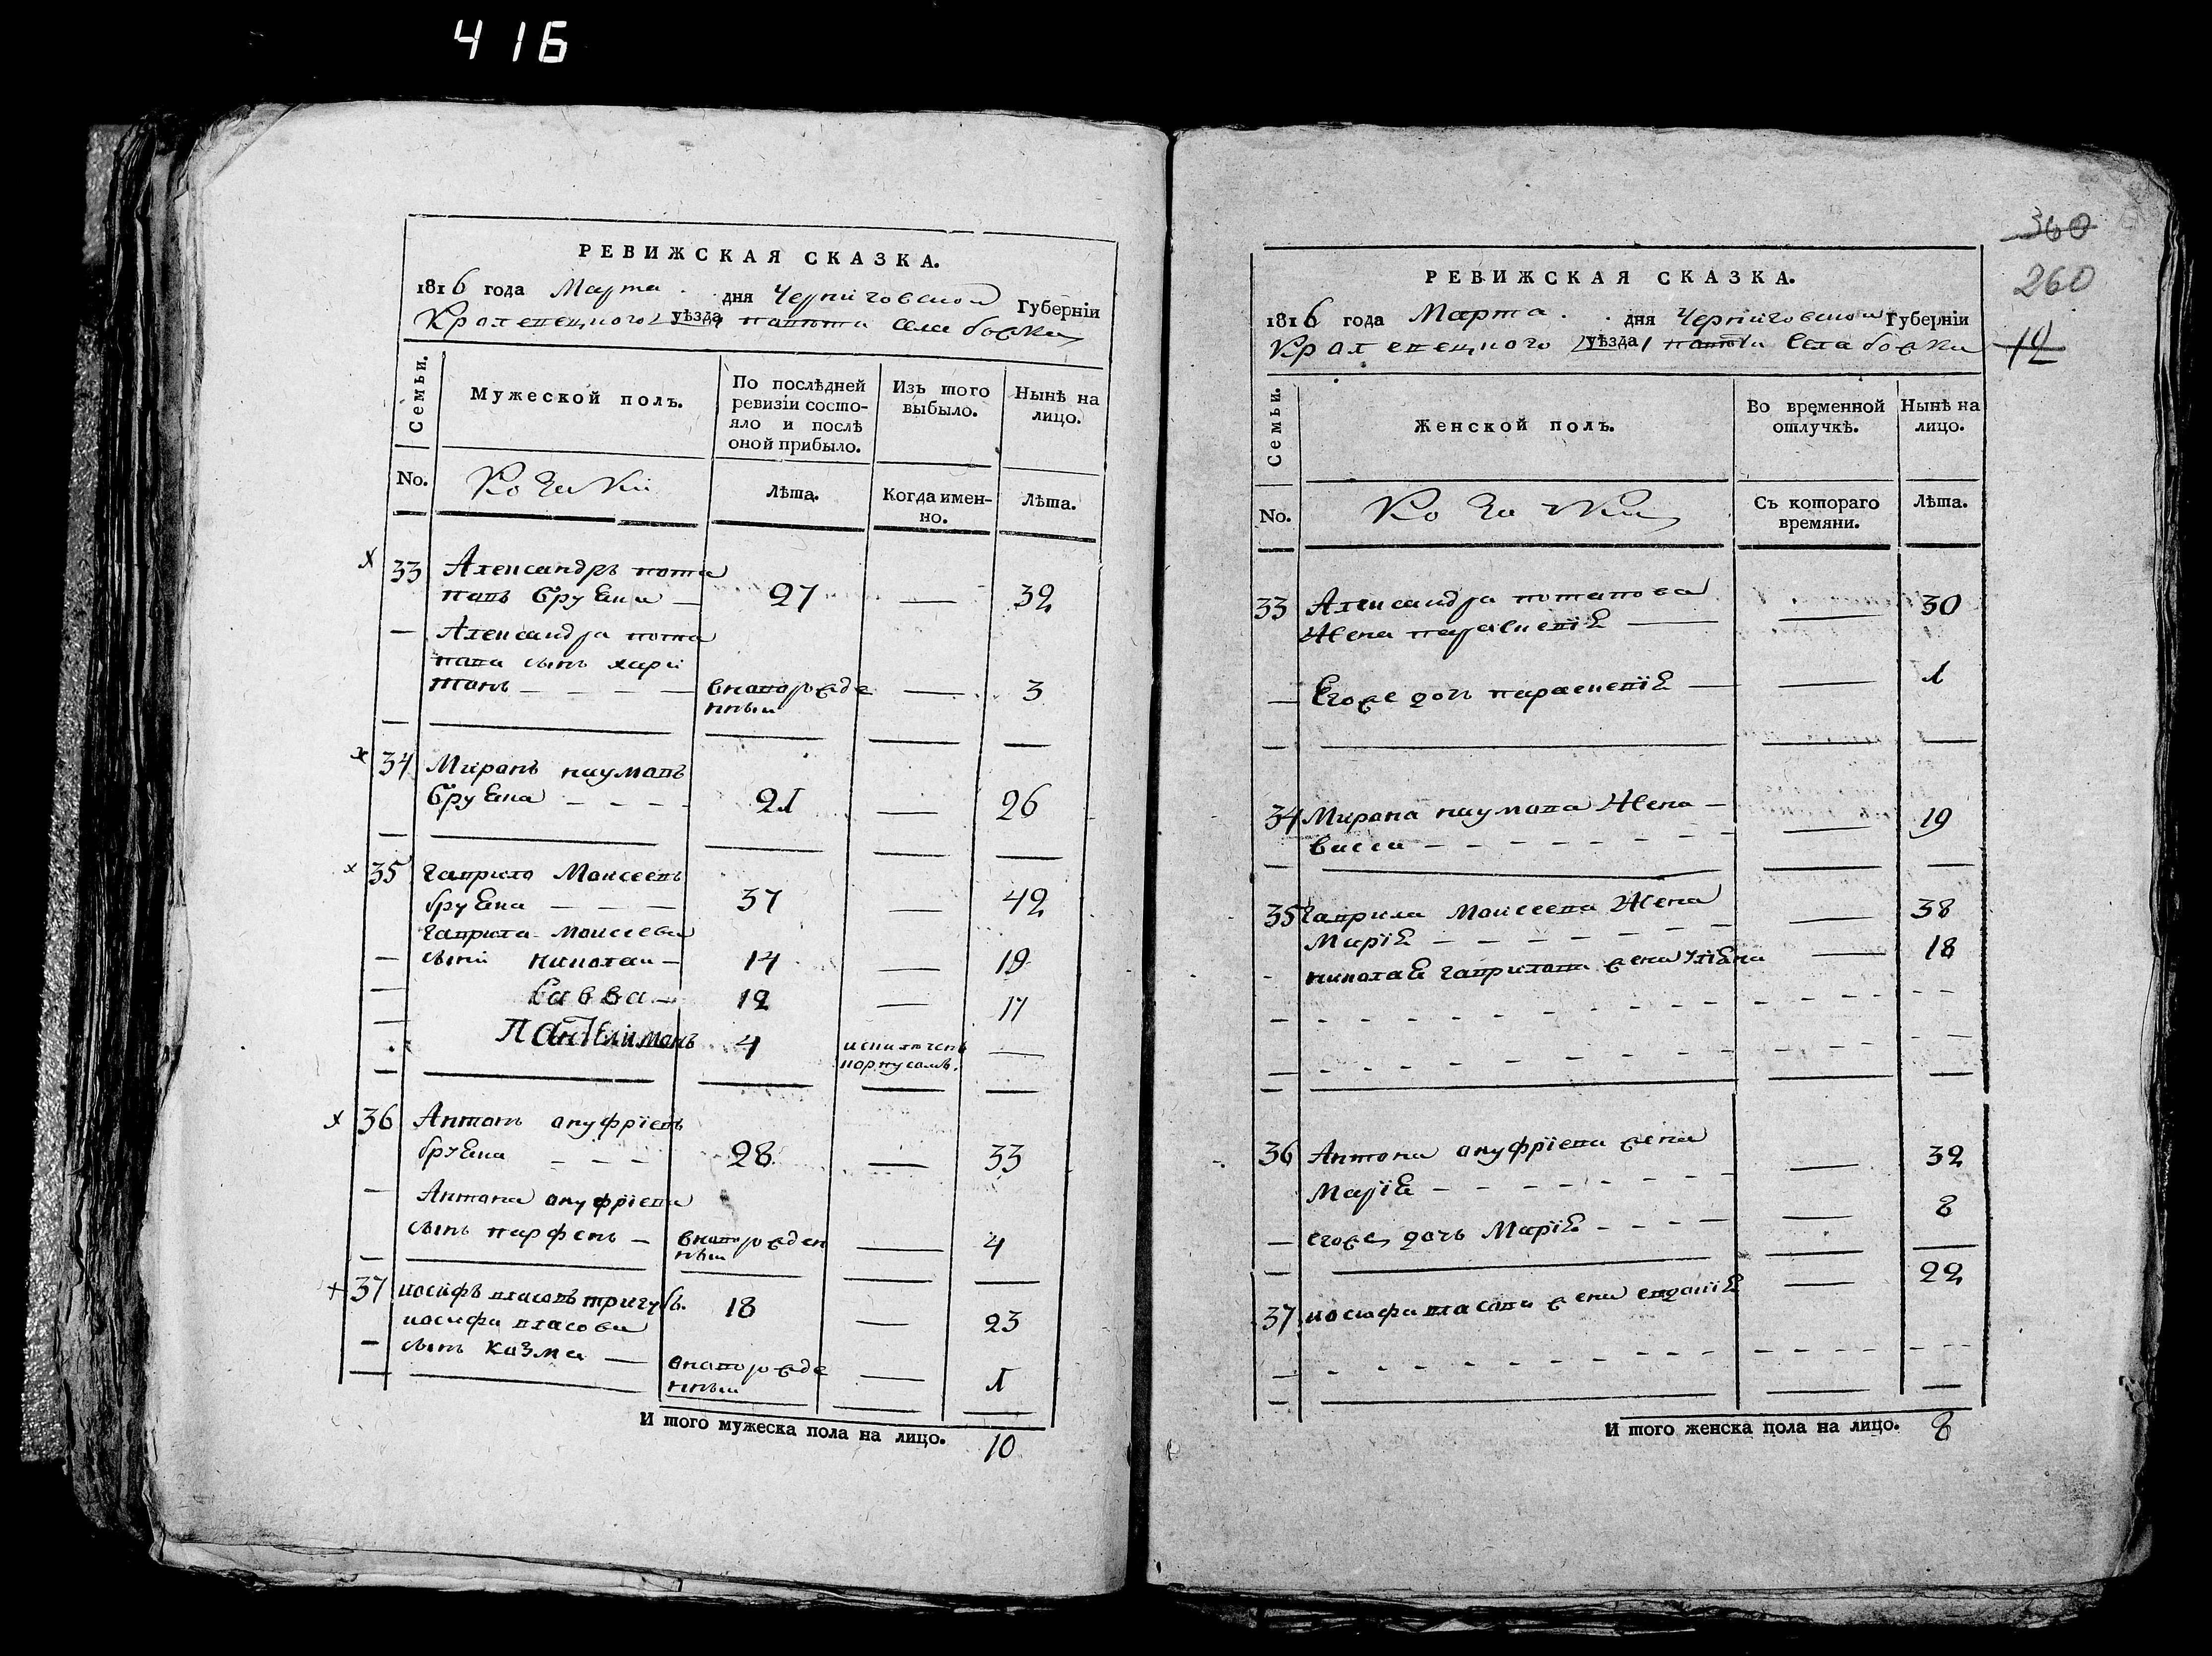 416
РЕВИЖСКАЯ СКАЗКА.
1816 года Марта . дня Черниговской Губерніи
Кролевецкого уѣзда села божки
Семьи.
Мужеской полъ.
По послѣдней ревизіи состо-
яло и послѣ
оной прибыло.
Изъ того
выбыло.
Нынѣ на
лицо.
No.
Козаки
Лѣта.
Когда имен-
но.
Лѣта.
x 33 Александръ пота
повъ 27 — 32
— Александра пота
пова сынъ хари
тонъ — вноворожде
нный — 3
x 34 Миронъ наумовъ
21 — 26
x 35 гаврило Моисеевъ
37 — 42
гаврила Моисеева
— сыны николаи — 14 — 19
— Савва — 12 — 17
— Пантелимонъ 4 исключенъ —
x 36 Антонъ ануфріевъ
28 — 33
— Антона ануфріева
сынъ парфенъ — вноворожден
ный — 4
+ 37 иосифъ власовъ тригубъ. 18 — 23
иосифа власова
— сынъ козма — вноворожде
нный — 1
И того мужеска пола на лицо. 10
360
260
12
РЕВИЖСКАЯ СКАЗКА.
1816 года Марта . . дня Черниговской Губерніи
Кролевецкого уѣзда Села божки
Семьи.
Женской полъ.
Во временной
отлучкѣ.
Нынѣ на
лицо.
No.
Козачки
Съ котораго
времяни.
Лѣта.
33 Александра потапова
Жена парасковія — — 30
— Егоже дочь парасковія — — 1
34 Мирона наумова Жена — — 19
васса
35 гаврила Моисеева Жена — 38
Марія
- николая гаврилова жена уліяна — 18
36 Антона ануфріева жена — 32
Марія
— егоже дочь Марія — 8
37 иосифа власова жена евдокія — 22
И того женска пола на лицо. 8